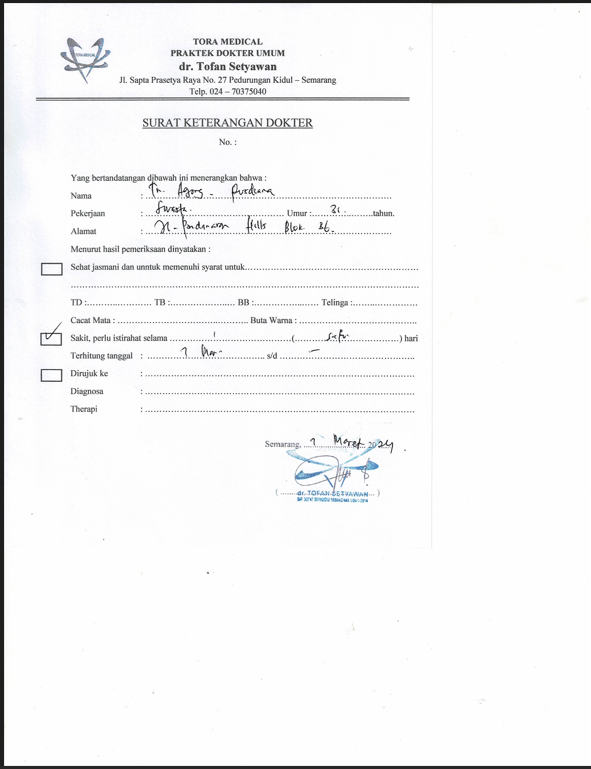 TORA MEDICAL
PRAKTEK DOKTER UMUM
dr. Tofan Setyawan
Jl. Sapta Prasetya Raya No. 27 Pedurungan Kidul – Semarang
Telp. 024 – 70375040
TORA MEDICAL
SURAT KETERANGAN DOKTER
No. :
Yang bertandatangan dibawah ini menerangkan bahwa :
Nama : Tn. Agung -
Pekerjaan : Swasta. Umur : 31. tahun.
Alamat : Jl. Hills Blok B6.
Menurut hasil pemeriksaan dinyatakan :
Sehat jasmani dan unntuk memenuhi syarat untuk
TD : TB : BB : Telinga :
Cacat Mata : Buta Warna :
Sakit, perlu istirahat selama 1 ( satu ) hari
Terhitung tanggal : 7 Mar- s/d –
Dirujuk ke :
Diagnosa :
Therapi :
Semarang, 7 Maret 2024
( dr. TOFAN SETYAWAN )